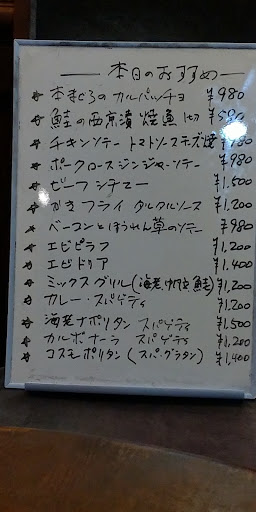 本日のおすすめ
本まぐろのカルパッチョ ¥980
鮭の西京漬焼魚 1切 ¥580
チキンソテー トマトソースチーズ焼 ¥980
ポークロースジンジャーソテー ¥980
ビーフシチュー ¥1,500
かきフライ タルタルソース ¥1,200
ベーコンとほうれん草のソテー ¥980
エビピラフ ¥1,200
エビドリア ¥1,400
ミックスグリル(海老、帆立、鮭) ¥1,200
カレー・スパゲティ ¥1,200
海老ナポリタン スパゲティ ¥1,500
カルボナーラ スパゲティ ¥1,200
コスモポリタン(スパ・グラタン) ¥1,400